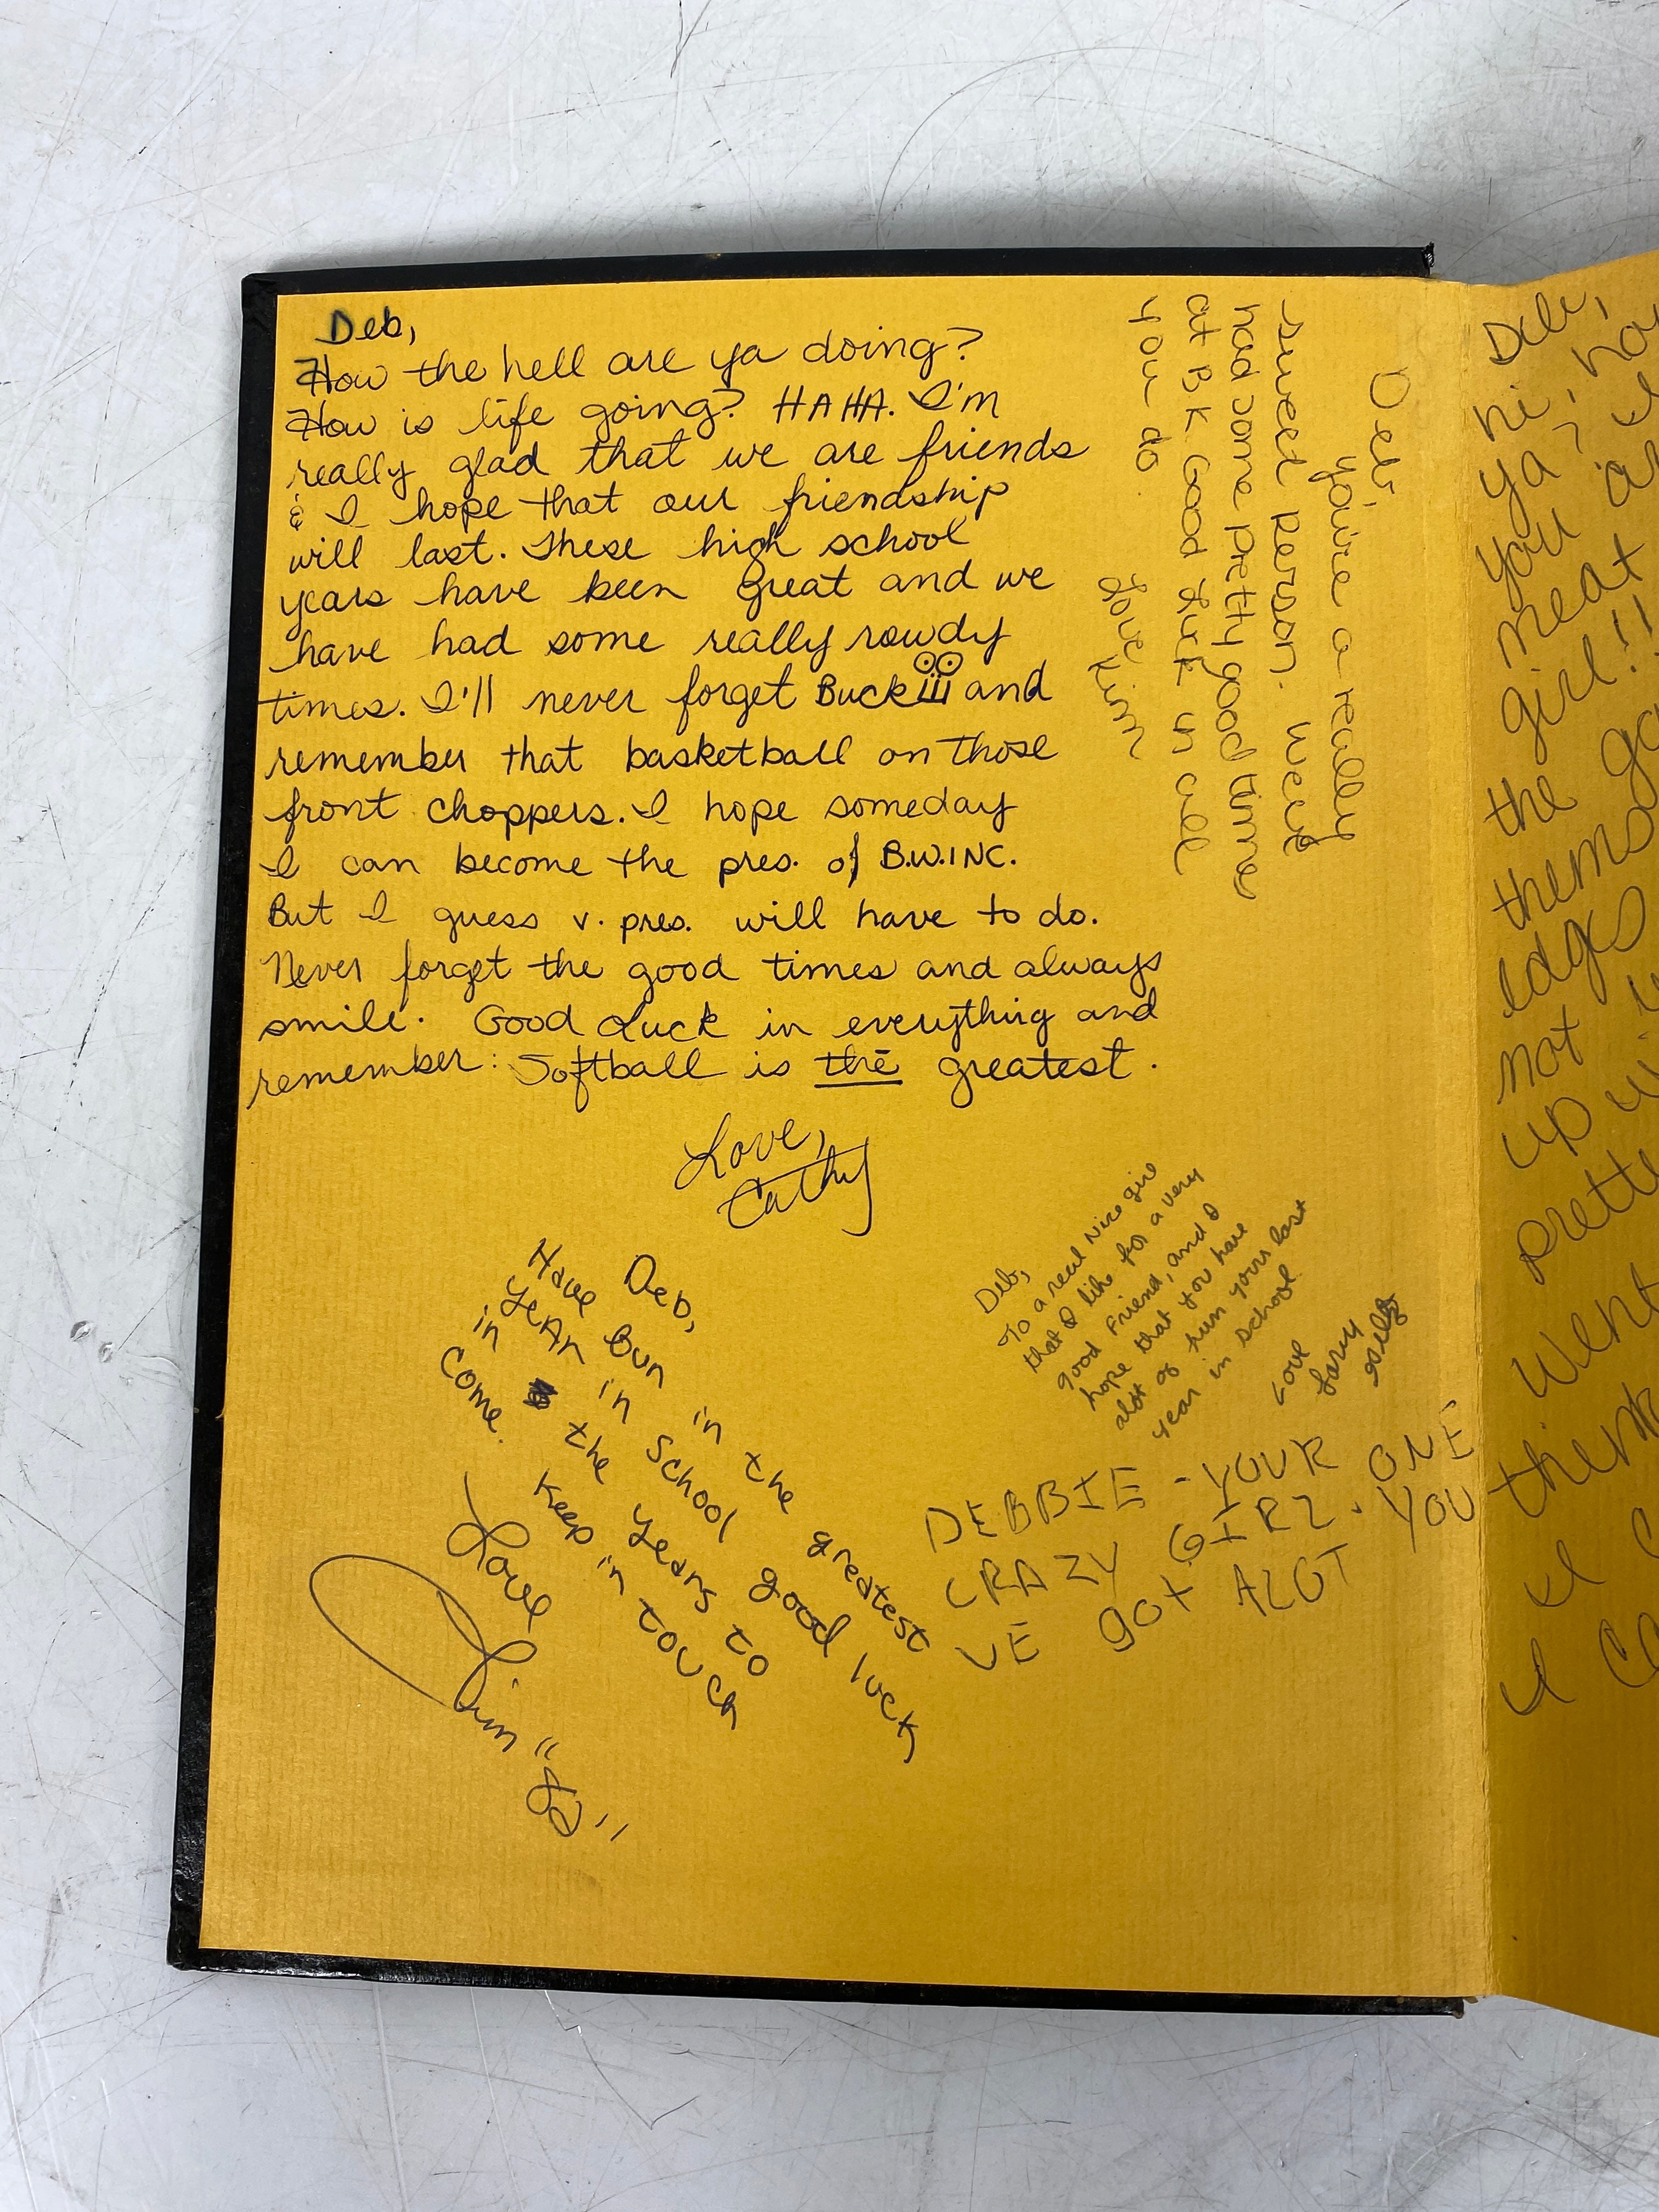 Deb,
How the hell are ya doing?
How is life going? HAHA. I'm
really glad that we are friends
& I hope that our friendship
will last. These high school
years have been great and we
have had some really rowdy
times. I'll never forget Buck and
remember that basketball on those
front choppers. I hope someday
I can become the pres. of B.W.INC.
But I guess v. pres. will have to do.
Never forget the good times and always
smile. Good Luck in everything and
remember: Softball is the greatest.
Love,
Cathy
Deb,
you're a really
sweet person. We've
had some pretty good time
at BK Good Luck in all
you do.
Love Kim
Deb,
To a real Nice girl
that I like for a very
good Friend, and I
hope that you have
alot of fun yours last
year in school
Love
Larry
Deb,
Have Bun in the greatest
year in School good luck
in the years to
Come. Keep in touch
Love
Jim
DEBBIE - YOUR ONE
CRAZY GIRL. YOU
VE GOT ALOT
Deb,
hi, 
ya? I
you
neat
girl!!
the
edges
not
up
Went
think
I
I